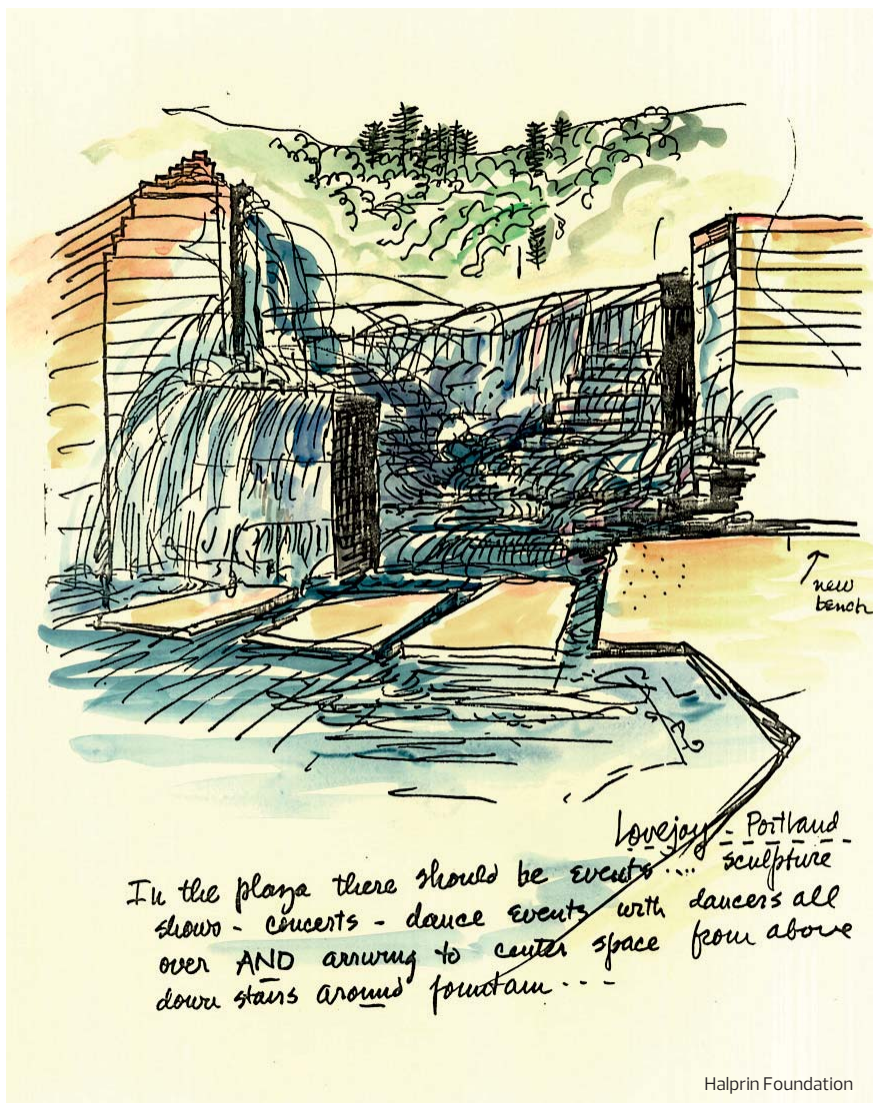 new
bench
Lovejoy - Portland
In the plaza there should be events .... sculpture
shows - concerts - dance events with dancers all
over AND arriving to center space from above
down stairs around fountain ---
Halprin Foundation